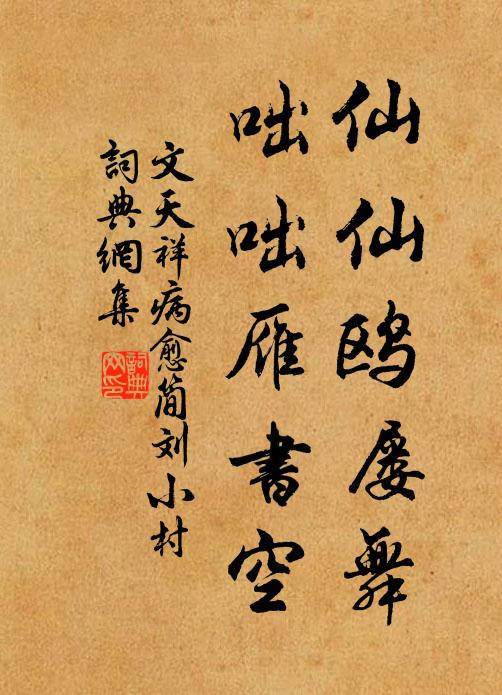 仙仙鸥屡舞
咄咄雁書空
文天祥病愈简刘小村
詞典網集
詞典网印